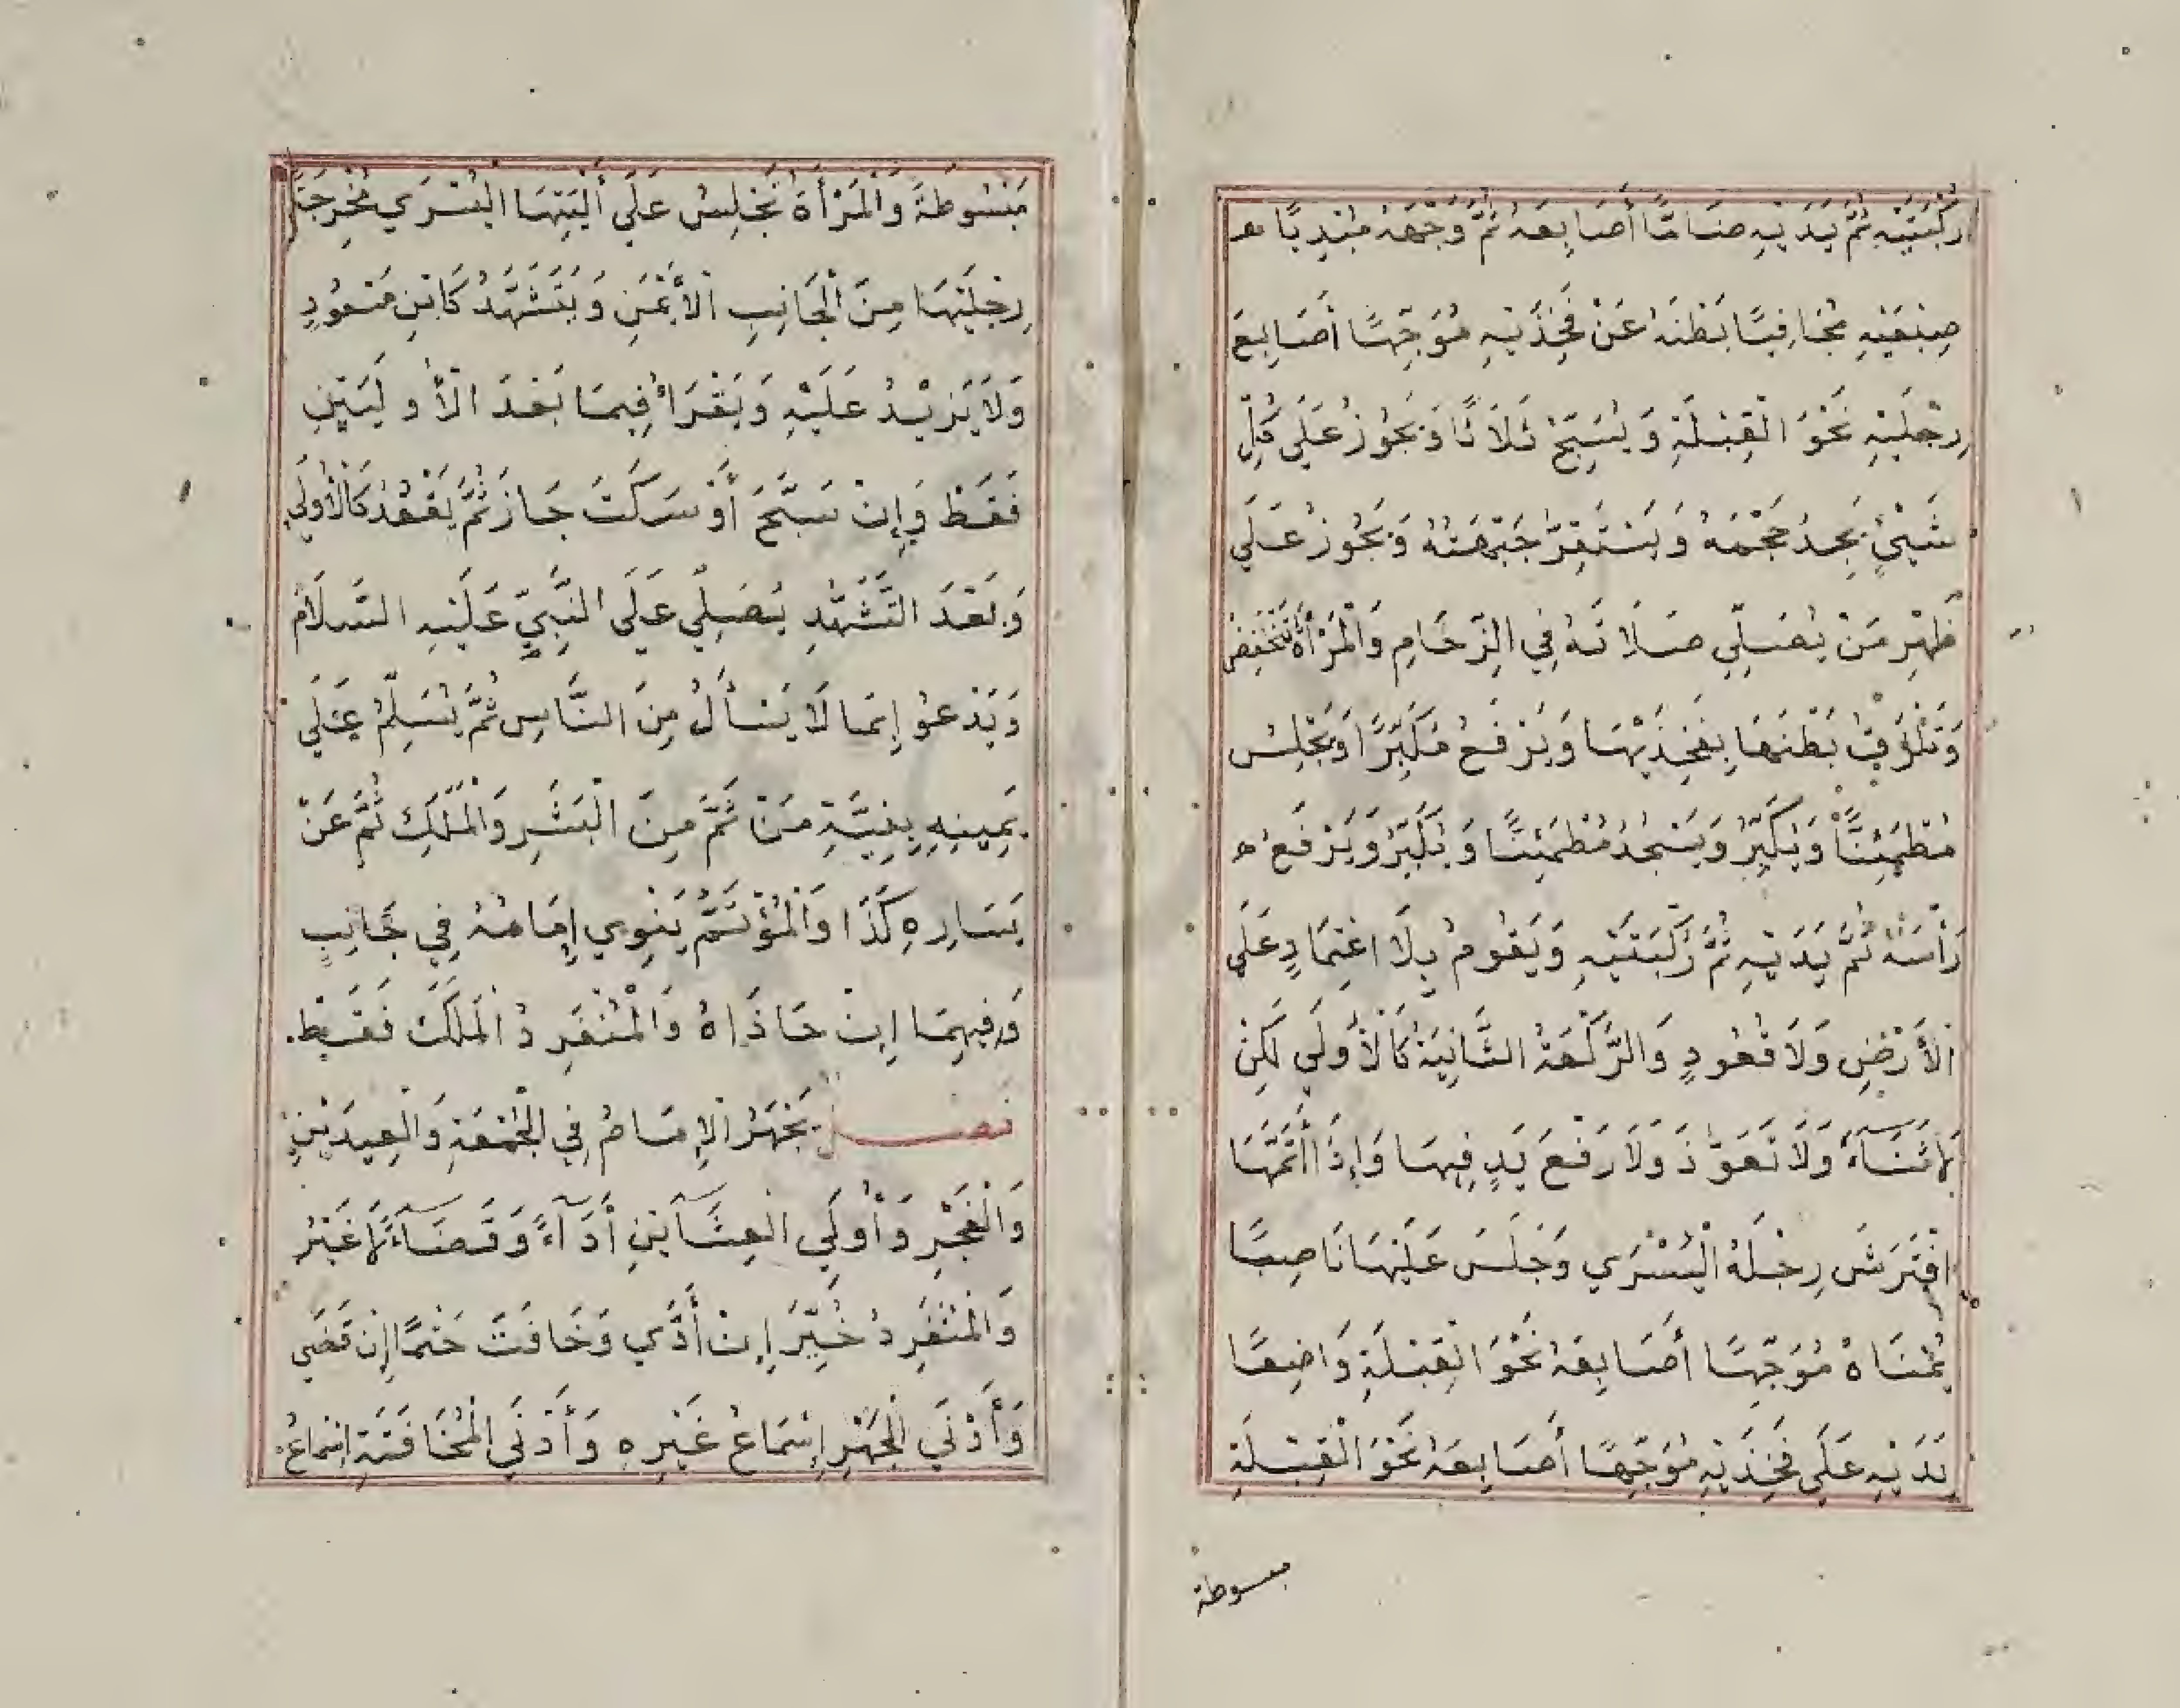 رُكْبَتَيْهِ ثُمَّ يَدَيْهِ ضَامًّا أَصَابِعَهُ ثُمَّ وَجْهَهُ مُبْدِيًا
ضِبْعَيْهِ مُجَافِيًا بَطْنَهُ عَنْ فَخِذَيْهِ مُوَجِّهًا أَصَابِعَ
رِجْلَيْهِ نَحْوَ الْقِبْلَةِ وَيُسَبِّحُ ثَلَاثًا وَيَجُوزُ عَلَى كُلِّ
شَيْئٍ يَجِدُ حَجْمَهُ وَيَسْتَقِرُّ جَبْهَتُهُ وَيَجُوزُ عَلَى
ظَهْرِ مَنْ يُصَلِّي صَلَاتَهُ فِي الزِّحَامِ وَالْمَرْأَةُ تَنْخَفِضُ
وَتُلْزِقُ بَطْنَهَا بِفَخِذَيْهَا وَيَرْفَعُ مُكَبِّرًا وَيَجْلِسُ
مُطْمَئِنًّا وَيُكَبِّرُ وَيَسْجُدُ مُطْمَئِنًّا وَيُكَبِّرُ وَيَرْفَعُ
رَأْسَهُ ثُمَّ يَدَيْهِ ثُمَّ رُكْبَتَيْهِ وَيَقُومُ بِلَا اعْتِمَادٍ عَلَى
الْأَرْضِ وَلَا قُعُودٍ وَالرَّكْعَةُ الثَّانِيَةُ كَالْأُولَى لَكِنْ
لَا ثَنَآءَ وَلَا تَعَوُّذَ وَلَا رَفْعَ يَدٍ فِيهَا وَإِذَا أَتَمَّهَا
افْتَرَشَ رِجْلَهُ الْيُسْرَي وَجَلَسَ عَلَيْهَا نَاصِبًا
يُمْنَاهُ مُوَجِّهًا أَصَابِعَهُ نَحْوَ الْقِبْلَةِ وَاضِعًا
يَدَيْهِ عَلَى فَخِذَيْهِ مُوَجِّهًا أَصَابِعَهُ نَحْوَ الْقِبْلَةِ
مبسوطة
مَبْسُوطَةً وَالْمَرْأَةُ تَجْلِسُ عَلَى أَلْيَتِهَا الْيُسْرَي مُخْرِجَةً
رِجْلَيْهَا مِنَ الْجَانِبِ الْأَيْمَنِ وَيَتَشَهَّدُ كَابْنِ مَسْعُودٍ
وَلَا يَزِيْدُ عَلَيْهِ وَيَقْرَأُ فِيمَا بَعْدَ الْأُولَيَيْنِ
فَقَطْ وَإِنْ سَبَّحَ أَوْ سَكَتَ جَازَ ثُمَّ يَقْعُدُ كَالْأُولَى
وَبَعْدَ التَّشَهُّدِ يُصَلِّي عَلَى النَّبِيِّ عَلَيْهِ السَّلَامُ
وَيَدْعُوا بِمَا لَا يَسْأَلُ مِنَ النَّاسِ ثُمَّ يُسَلِّمُ عَلَى
يَمِينِهِ بِنِيَّةِ مَنْ ثَمَّ مِنَ الْبَشَرِ وَالْمَلَكِ ثُمَّ عَنْ
يَسَارِهِ كَذَا وَالْمُؤْتَمُّ يَنْوِي إِمَامَهُ فِي جَانِبِهِ
وَفِيهِمَا إِنْ حَاذَاهُ وَالْمُنْفَرِدُ الْمَلَكَ فَقَطْ.
فصل يَجْهَرُ الْإِمَامُ فِي الْجُمْعَةِ وَالْعِيدَيْنِ
وَالْفَجْرِ وَأُولَيِ الْعِشَآيَنِ أَدَآءً وَقَضَآءً لَا غَيْرُ
وَالْمُنْفَرِدُ خُيِّرَ إِنْ أَدَّي وَخَافَتَ حَتْمًا إِنْ قَضَي
وَأَدْنَي الْجَهْرِ إِسْمَاعُ غَيْرِهِ وَأَدْنَي الْمُخَافَتَةِ إِسْمَاعُ